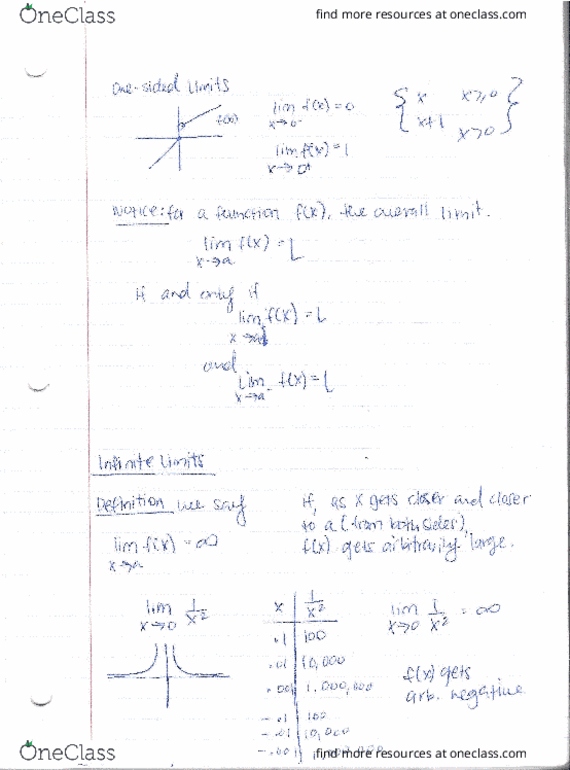 OneClass
find more resources at oneclass.com
One-sided Limits
f(x)
lim f(x) = 0
x→0⁻
lim f(x) = 1
x→0⁺
{ x x≥0 }
{ x+1 x>0 }
Notice: for a function f(x), the overall limit.
lim f(x) = L
x→a
if and only if
lim f(x) = L
x→a
and
lim f(x) = L
x→a⁻
Infinite Limits
Definition we say
lim f(x) = ∞
x→a
if, as x gets closer and closer
to a (from both sides),
f(x) gets arbitrarily large.
lim 1/x²
x→0
x | 1/x²
.1 | 100
.01 | 10,000
.001 | 1,000,000
-.1 | 100
-.01 | 10,000
-.001
lim 1/x² = ∞
x→0
f(x) gets
arb. negative
OneClass
find more resources at oneclass.com